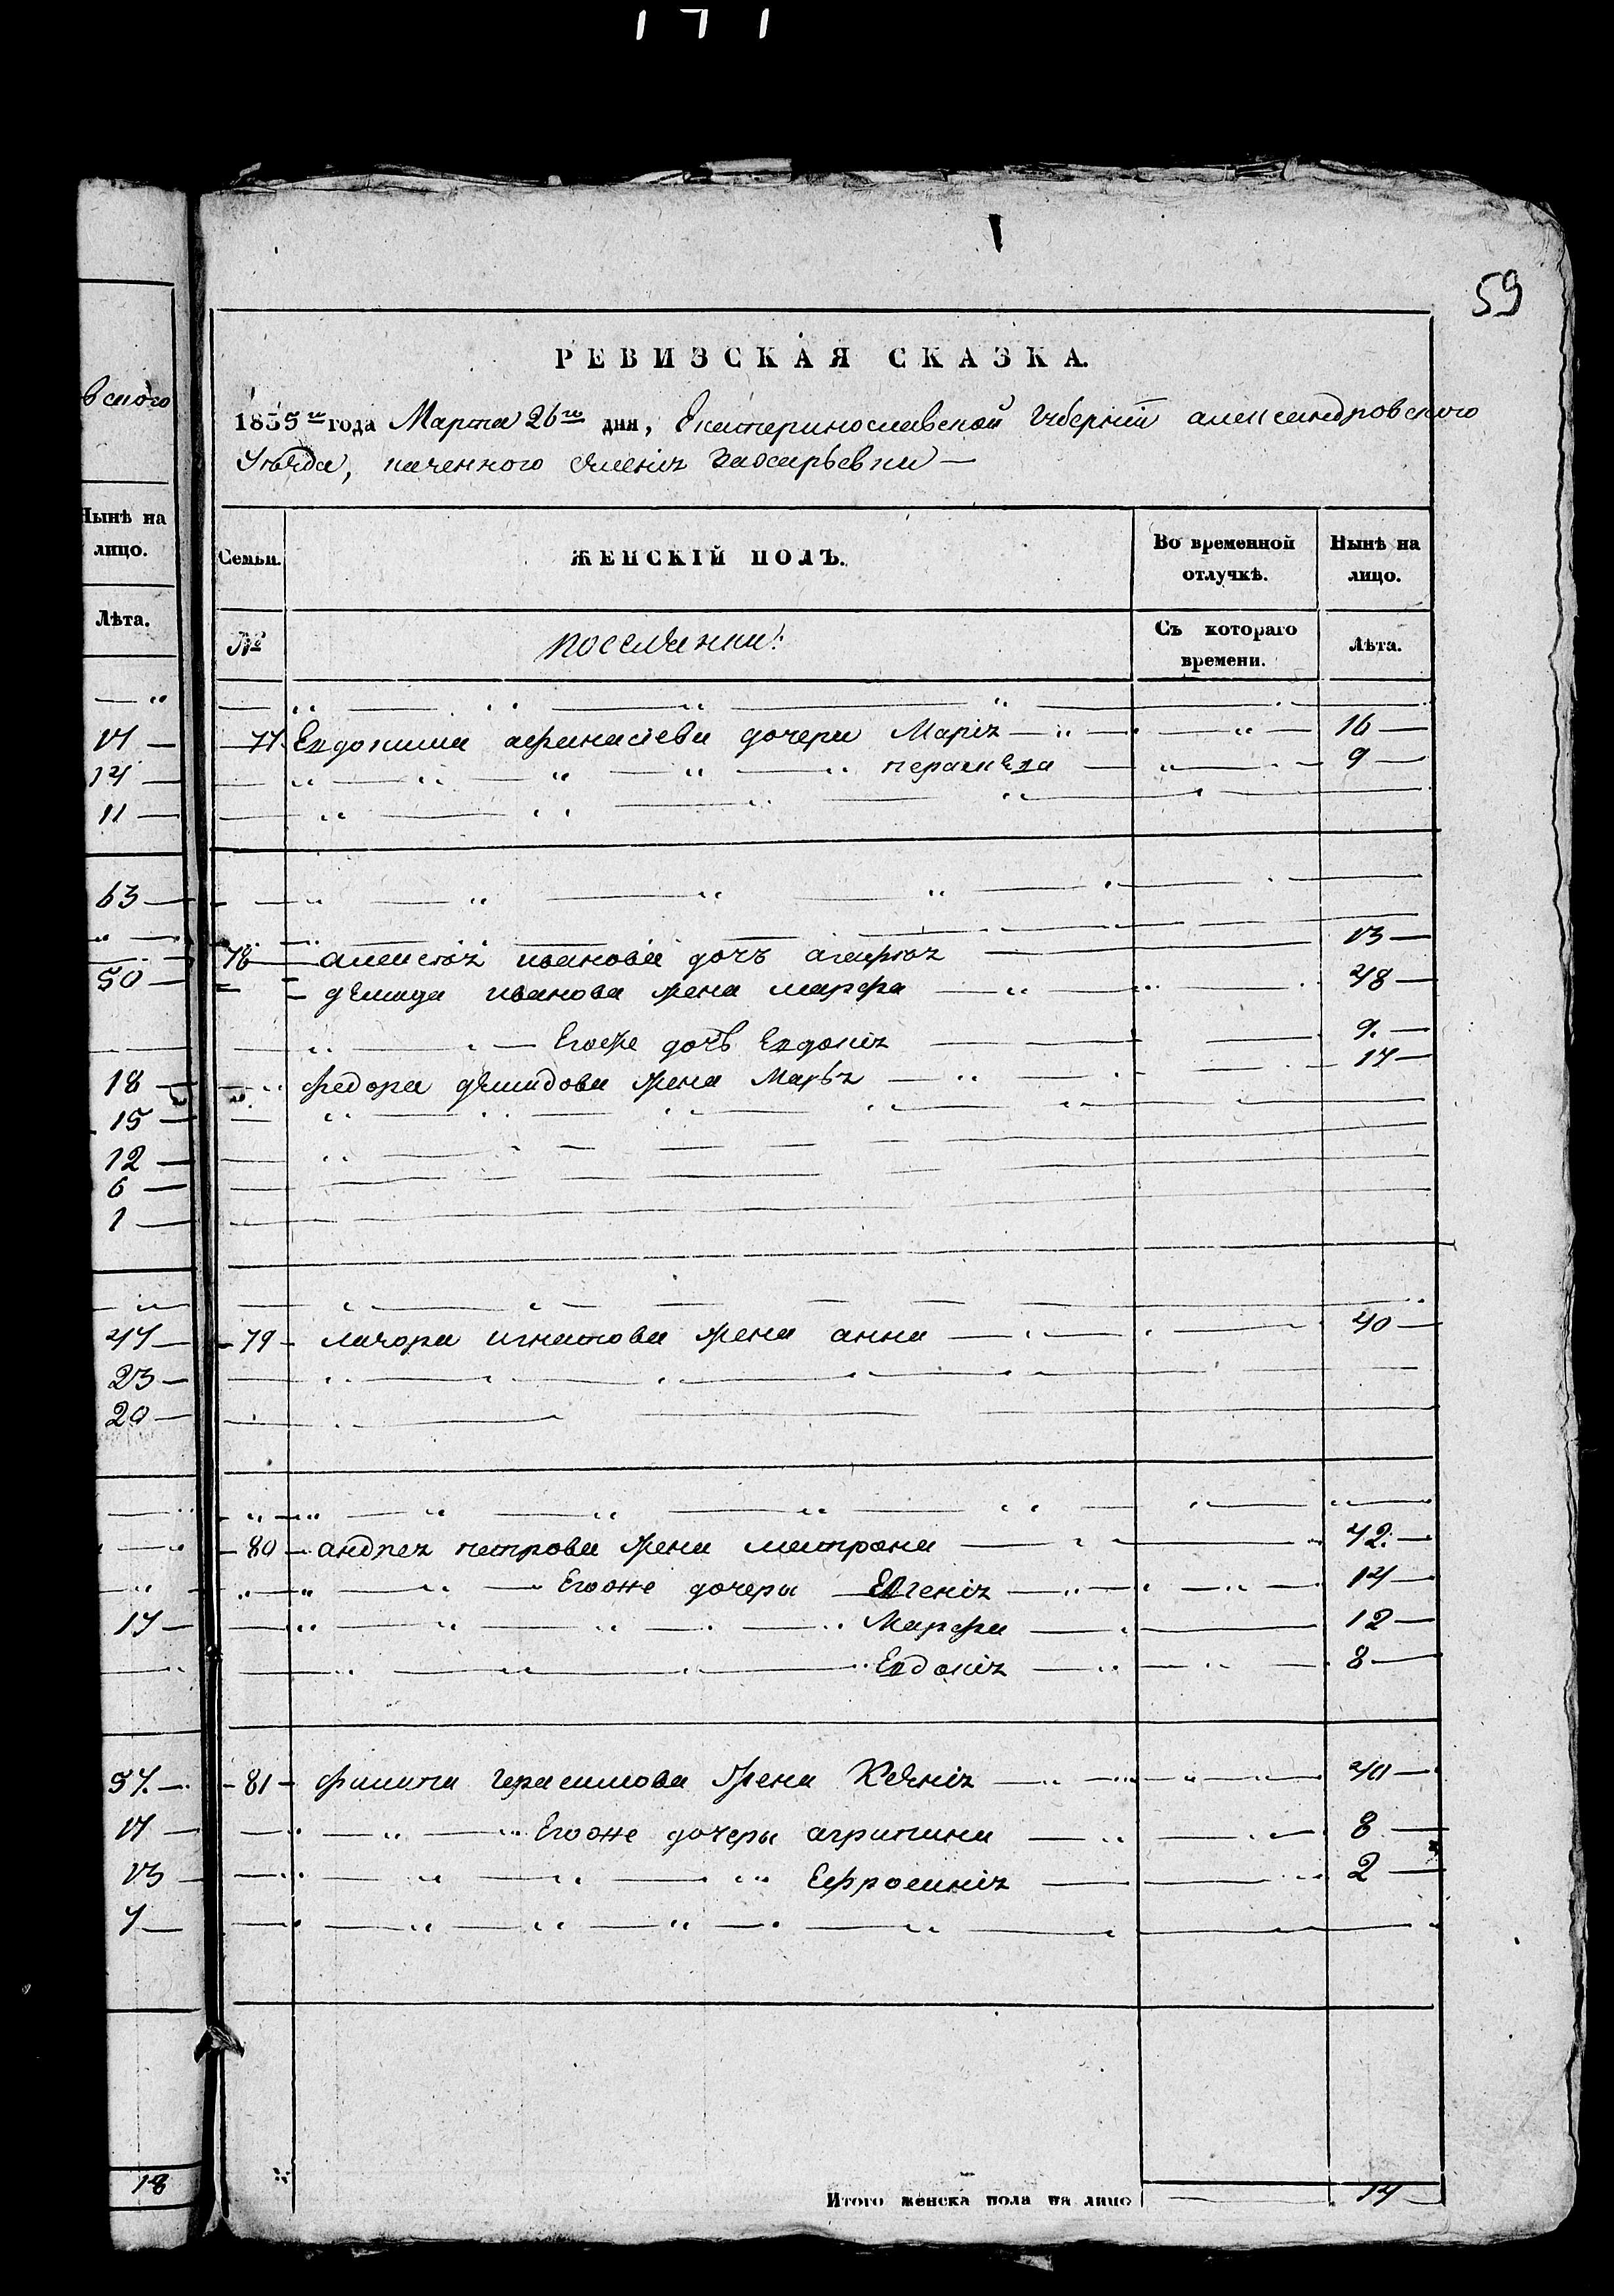 171
59
вского
Нынѣ на
лицо.
Лѣта.
14
11
63
50
18
15
12
6
1
47
23
20
17
57
13
7
18
РЕВИЗСКАЯ СКАЗКА.
1835го года Марта 26го дня, Екатеринославской Губерніи александровского
Уезда, имения
Семьи. ЖЕНСКІЙ ПОЛЪ. Во временной отлучкѣ. Нынѣ на лицо.
№ поселяни: Съ котораго времени. Лѣта.
77 Евдокима афанасіева дочери Марія 16
9
78 алексѣя иванова дочъ агафія 13
демида иванова жена марфа 48
Егоже дочъ Евдокія 9
федора демидова жена Марья 17
79 игнатова жена анна 40
80 андрея петрова жена матрона 42
Егоже дочери Евгенія 14
Марфа 12
Евдокія 8
81 филипа герасимова жена Ксенія 40
Егоже дочеры агрипина 8
Ефросинія 2
Итого женска пола на лицо 14